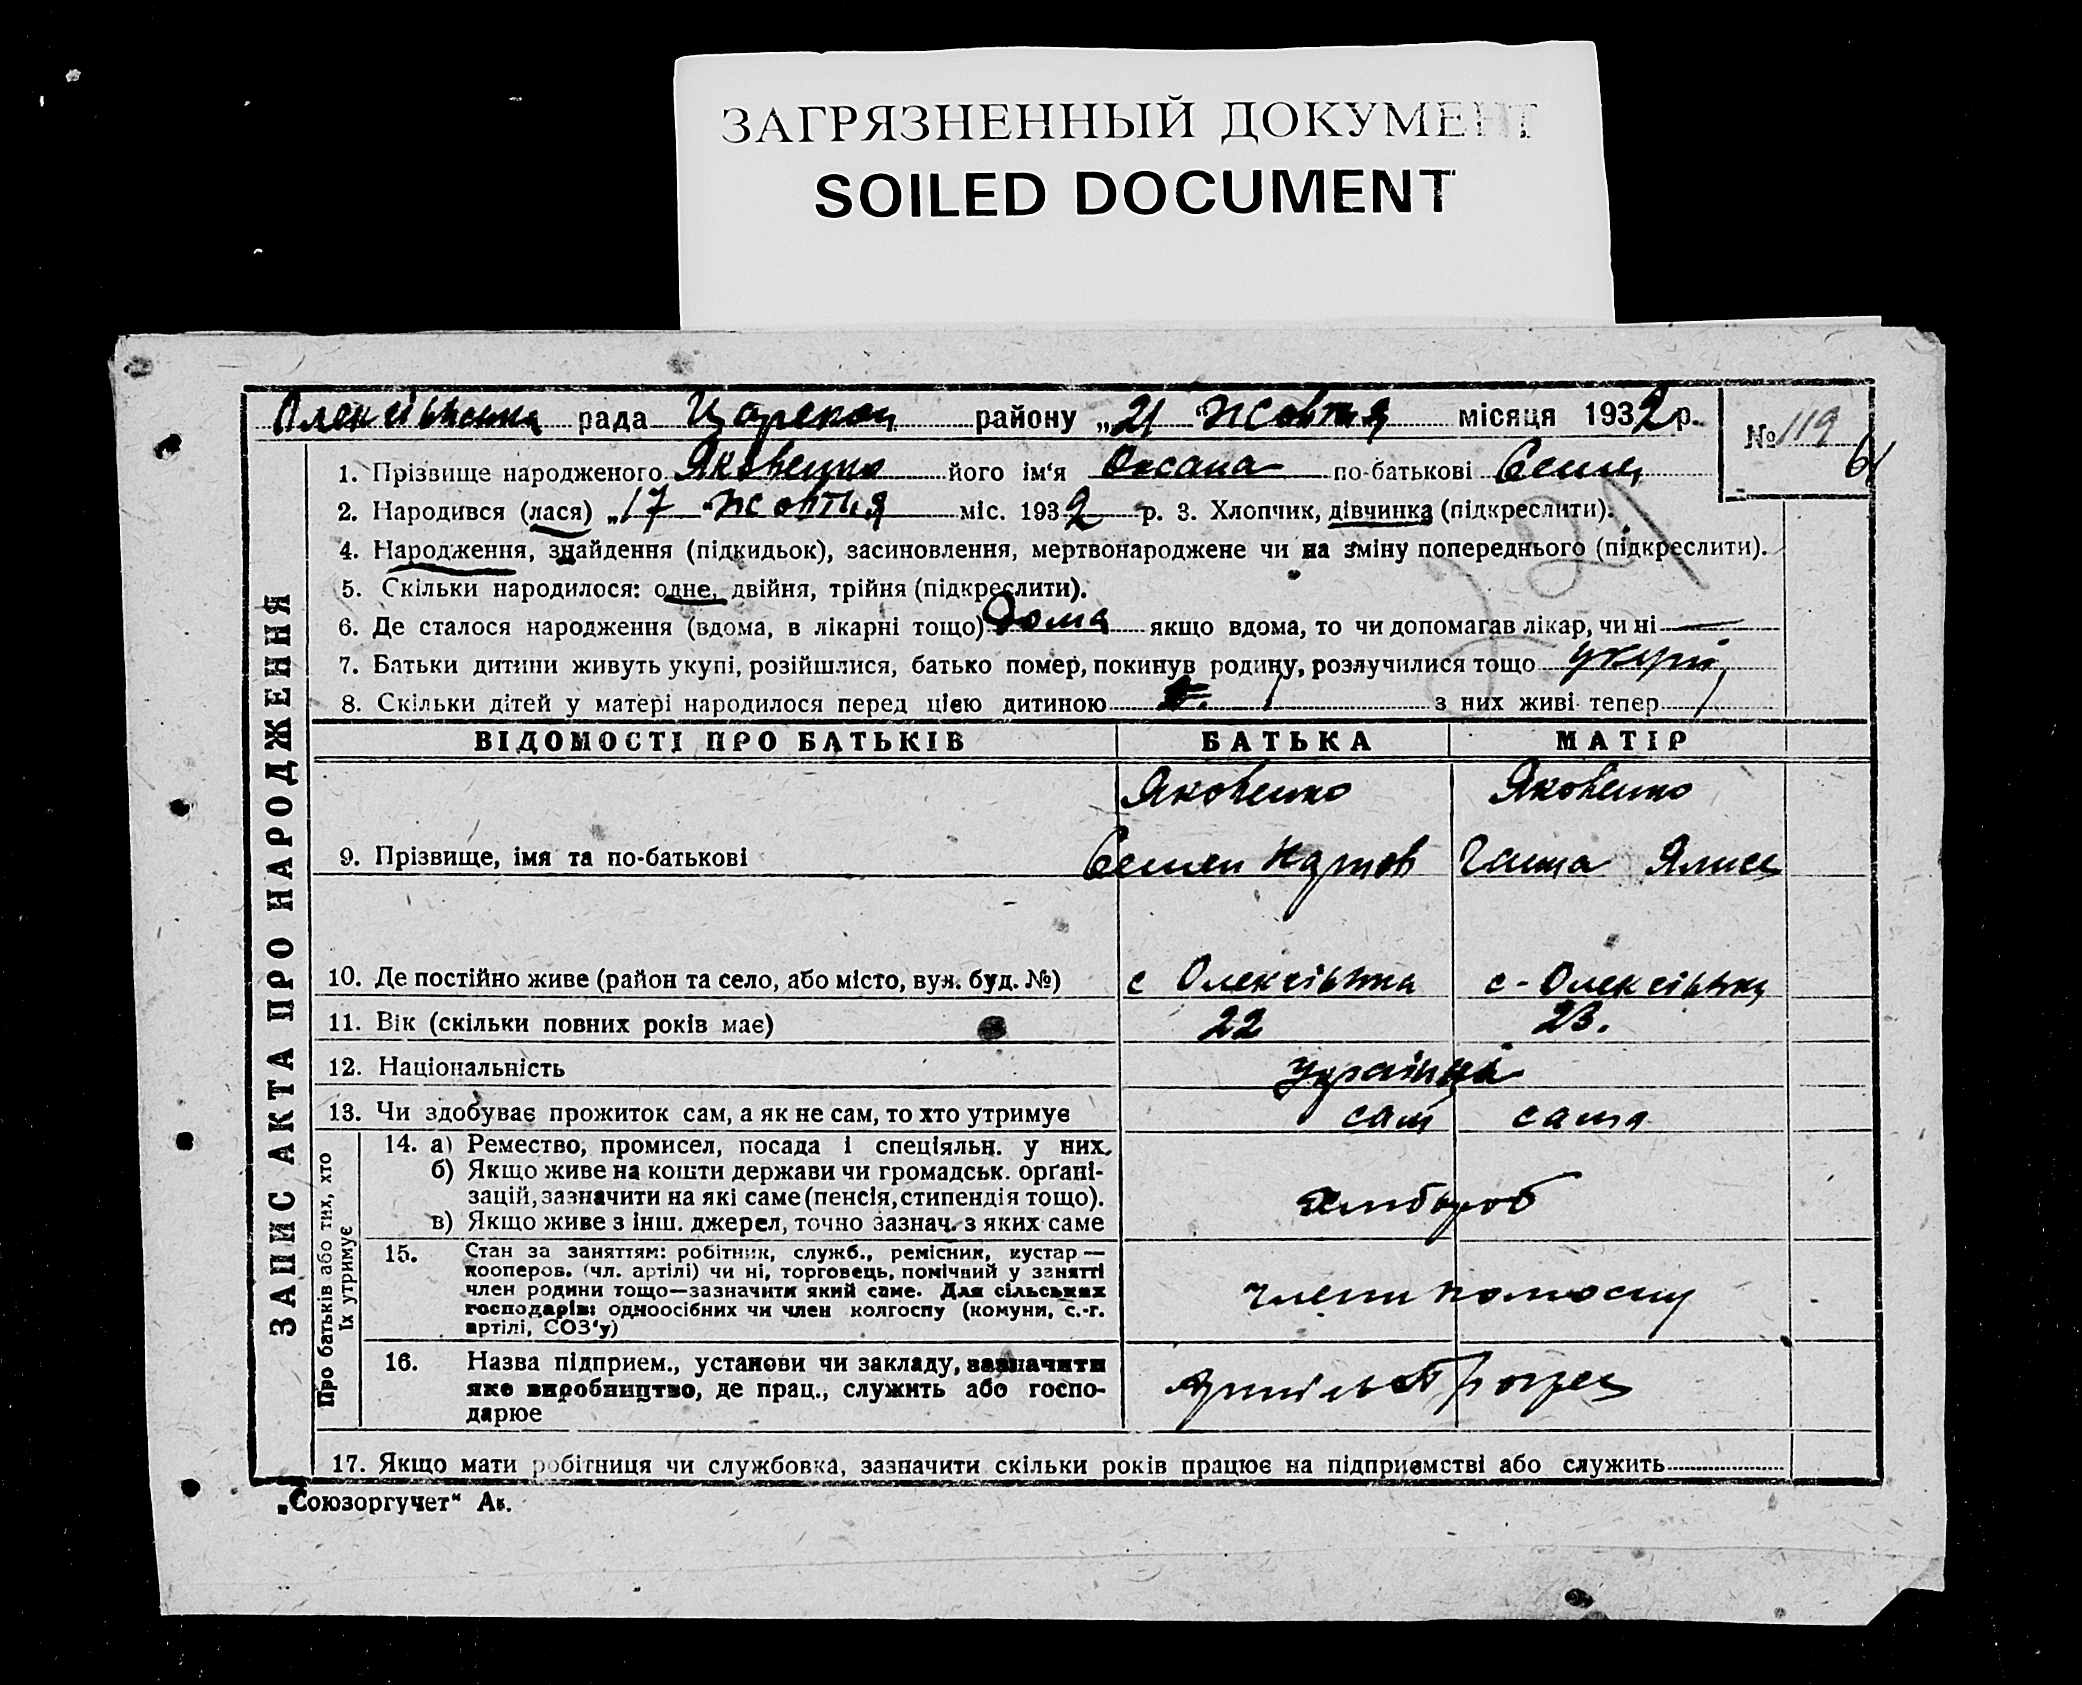 ЗАГРЯЗНЕННЫЙ ДОКУМЕНТ
SOILED DOCUMENT
Олексіївська рада район у „21“ Жовтня місяця 1932 р.
№ 119
1. Прізвище народженого Яковенко його ім‘я Оксана по-батькові Семен
2. Народився (лася) „17“ Жовтня міс. 1932 р. 3. Хлопчик, дівчинка (підкреслити).
4. Народження, знайдення (підкидьок), засиновлення, мертвонароджене чи на зміну попереднього (підкреслити).
5. Скільки народилося: одне, двійня, трійня (підкреслити).
6. Де сталося народження (вдома, в лікарні тощо) Дома якщо вдома, то чи допомагав лікар, чи ні —
7. Батьки дитини живуть укупі, розійшлися, батько помер, покинув родину, розлучилися тощо укупі
8. Скільки дітей у матері народилося перед цією дитиною 1 з них живі тепер 1
ЗАПИС АКТА ПРО НАРОДЖЕННЯ
ВІДОМОСТІ ПРО БАТЬКІВ БАТЬКА МАТІР
Яковенко Яковенко
9. Прізвище, імя та по-батькові Семен Ганна
10. Де постійно живе (район та село, або місто, вул. буд. №) с Олексіївка с-Олексіївка
11. Вік (скільки повних років має) 22 23.
12. Національність Українці
13. Чи здобуває прожиток сам, а як не сам, то хто утримує сам сама
Про батьків або тих, хто
їх утримує
14. а) Ремество, промисел, посада і спеціяльн. у них.
б) Якщо живе на кошти держави чи громадськ. орґані-
зацій, зазначити на які саме (пенсія, стипендія тощо).
в) Якщо живе з інш. джерел, точно зазнач. з яких саме
хлібороб
15. Стан за заняттям: робітник, служб., ремісник, кустар —
кооперов. (чл. артілі) чи ні, торговець, помічний у занятті
член родини тощо—зазначити який саме. Для сільських
господарів: одноосібних чи член колгоспу (комуни, с.-г.
артілі, СОЗ‘у)
члени колгоспу
16. Назва підприєм., установи чи закладу, зазначити
яке виробництво, де прац., служить або госпо-
дарює
17. Якщо мати робітниця чи службовка, зазначити скільки років працює на підприємстві або служить
„Союзоргучет“ Ак.